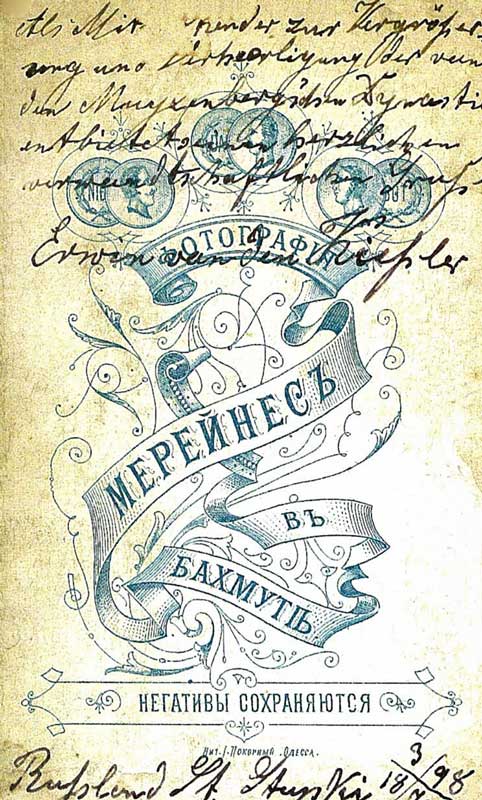 Als Mit gender zur Vergrösser
ung und Verherrligung der von
den Muyzenberg'schen Dynastie
entbietet seinen herzlichen
verwandtschaftlichen Gruß
Erwin van den
ФОТОГРАФІЯ
МЕРЕЙНЕСЪ
ВЪ
БАХМУТѢ.
НЕГАТИВЫ СОХРАНЯЮТСЯ
Лит. І. Покорный. Одесса.
Russland St.
18 3/ 98